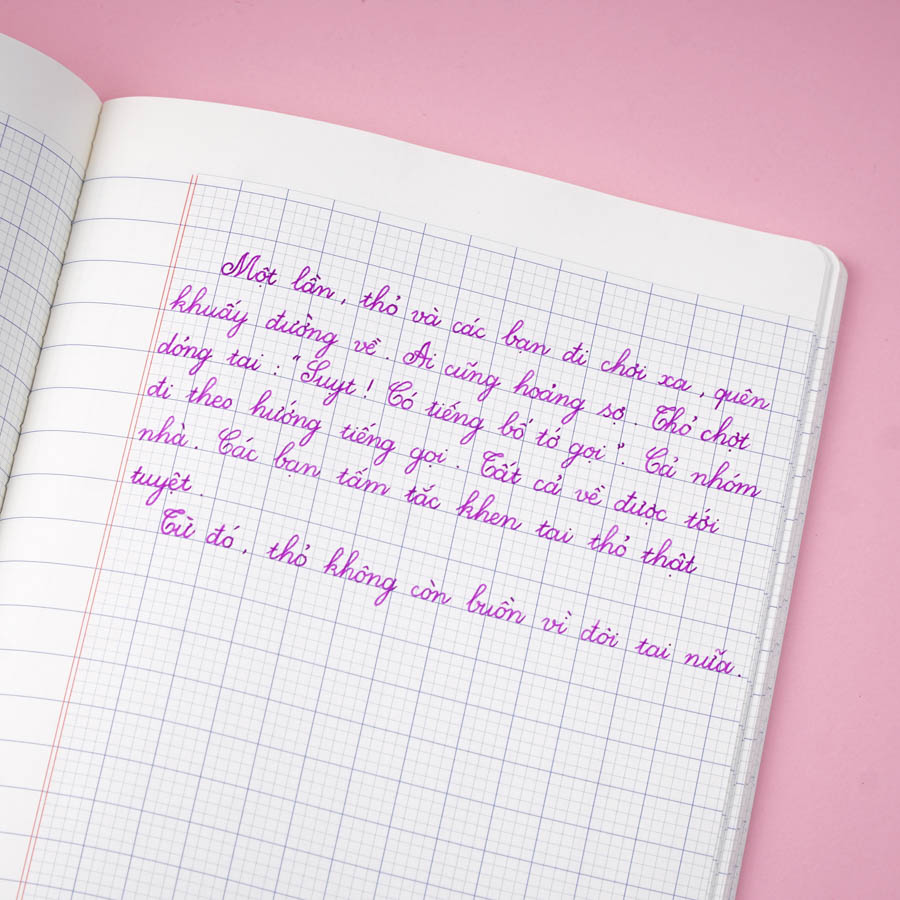 Một lần, thỏ và các bạn đi chơi xa, quên
khuấy đường về. Ai cũng hoảng sợ. Thỏ chợt
dỏng tai: "Suỵt! Có tiếng bố tớ gọi". Cả nhóm
đi theo hướng tiếng gọi. Tất cả về được tới
nhà. Các bạn tấm tắc khen tai thỏ thật
tuyệt.
Từ đó, thỏ không còn buồn vì đôi tai nữa.